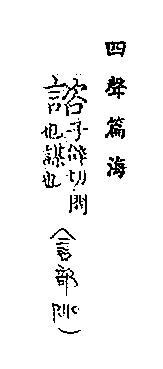 四聲篇海
諮子切問
也謀也
(言部